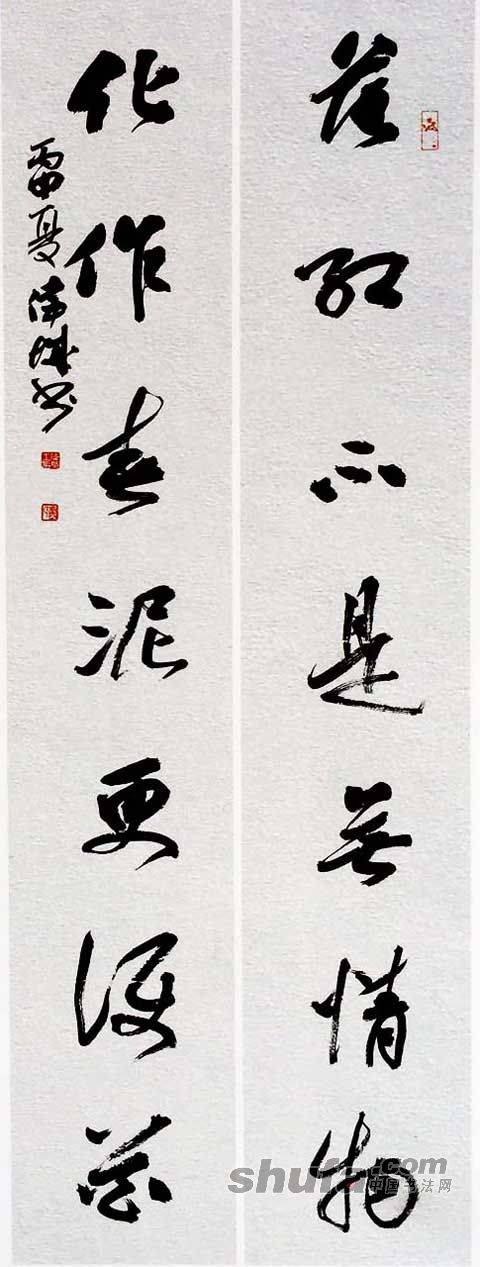 落红不是无情物
化作春泥更护花
shufa.com
中国书法网